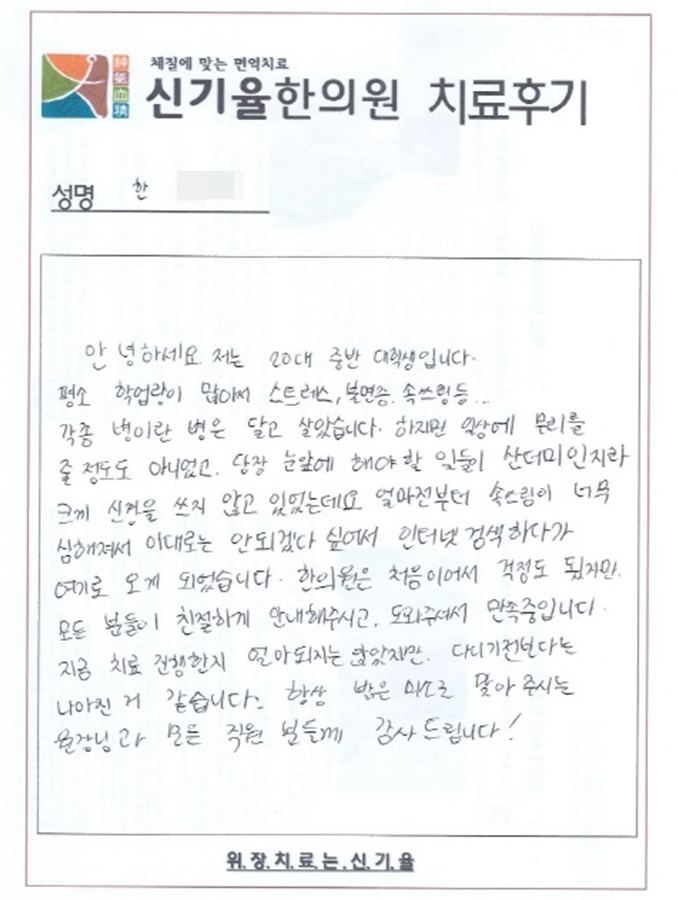 체질에 맞는 면역치료
신기율한의원 치료후기
성명 한
안녕하세요. 저는 20대 중반 대학생입니다.
평소 학업량이 많아서 스트레스, 불면증. 속쓰림 등...
각종 병이란 병은 달고 살았습니다. 하지만 일상에 무리를
줄 정도도 아니었고. 당장 눈앞에 해야할 일들이 산더미인지라
크게 신경을 쓰지 않고 있었는데요 얼마전부터 속쓰림이 너무
심해져서 이대로는 안되겠다 싶어서 인터넷 검색하다가
여기로 오게 되었습니다. 한의원은 처음이어서 걱정도 됐지만.
모든 분들이 친절하게 안내해주시고. 도와주셔서 만족중입니다.
지금 치료 진행한지 얼마되지는 않았지만. 다니기전보다는
나아진 거 같습니다. 항상 밝은 미소로 맞아 주시는
원장님과 모든 직원 분들께 감사드립니다!
위.장.치.료.는.신.기.율